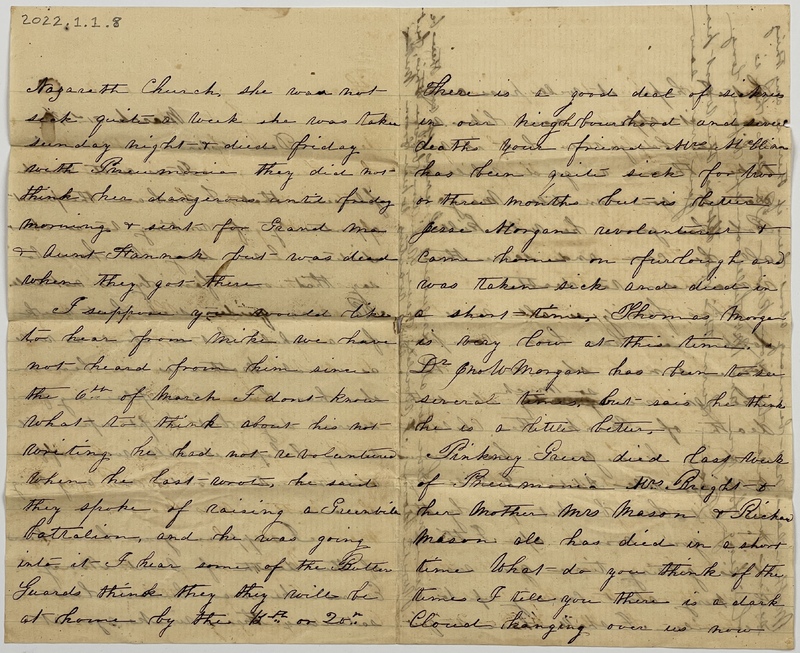 2022.1.1.8
Nazareth Church, she was not
sick quite a week she was taken
sunday night & died friday
with Pneumonia they did not
think her dangerous until friday
morning & sent for Grand ma
& Aunt Hannah but was dead
when they got there
I suppose you would like
to hear from Mike we have
not heard from him since
the 6th of March I dont know
what to think about his not
writing he had not revolunteered
when he last wrote, he said
they spoke of raising a Greenville
battalion, and he was going
into it I hear some of the Butler
Guards think they they will be
at home by the or 20th
There is a good deal of sickness
in our neighbourhood and
deaths your friend Mrs
has been quite sick for two
or three months but is better
Jesse Morgan revolunteered &
came home on furlough and
was taken sick and died in
a short time, Thomas Morgan
is very low at this time.
Dr Jno W Morgan has been to see
several times, but sais he thinks
he is a little better,
Pinkney Greer died last week
of Pneumonia Mrs Bright &
her Mother Mrs Mason & Richard
Mason all has died in a short
time What do you think of the
times I tell you there is a dark
Cloud hanging over us now